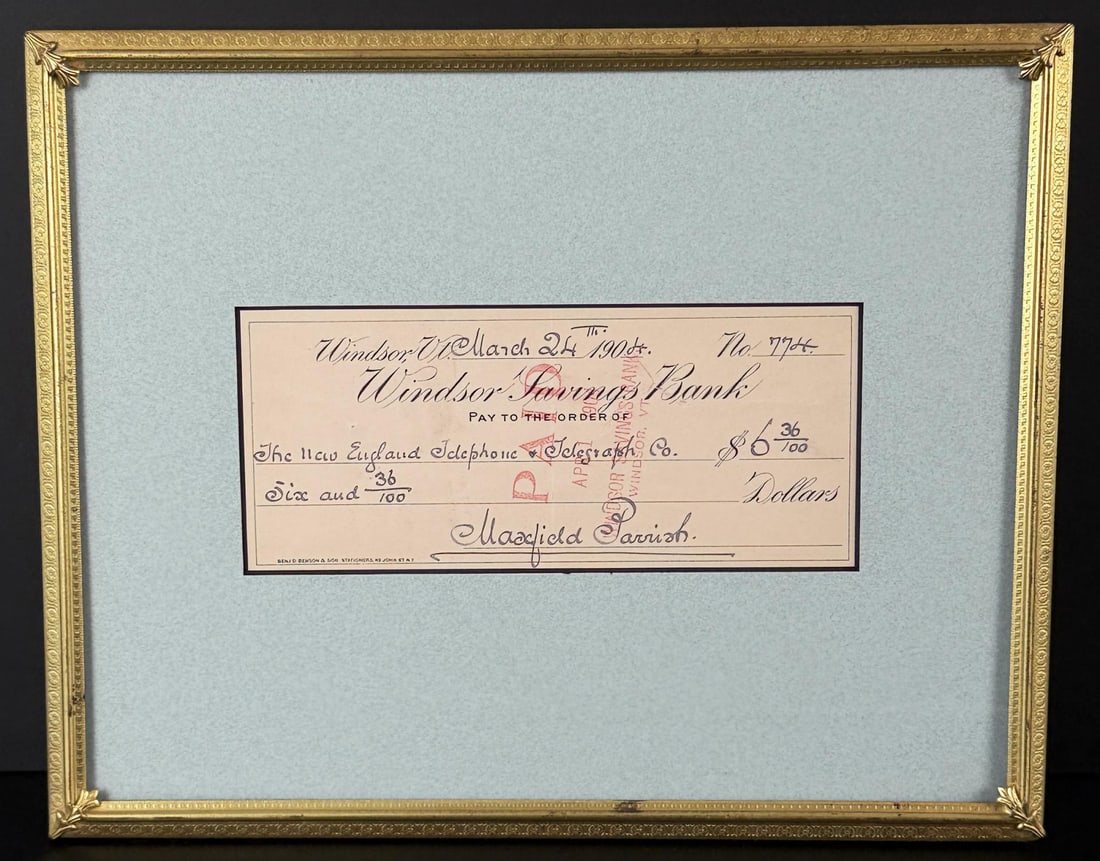 Windsor, Vt. March 24th. 1904. No. 774.
Windsor Savings Bank
PAY TO THE ORDER OF
The New England Telephone & Telegraph Co. $6 36/100
Six and 36/100 Dollars
Maxfield Parrish.
BENJ D. BENSON & SON STATIONERS, 43 JOHN ST. N.Y.
PAID
APR 1 190
WINDSOR SAVINGS BANK
WINDSOR, VT.